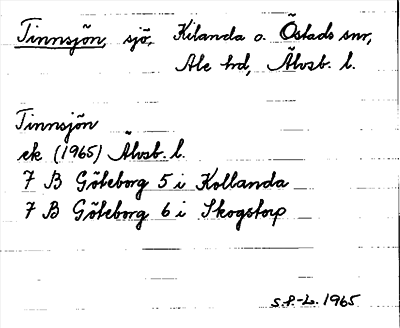 Tinnsjön, sjö, Kilanda o. Östads snr,
Ale hd, Älvsb. l.
Tinnsjön
ek (1965) Älvsb. l.
7 B Göteborg 5 i Kollanda
7 B Göteborg 6 i Skogstorp
S.F.-L. 1965